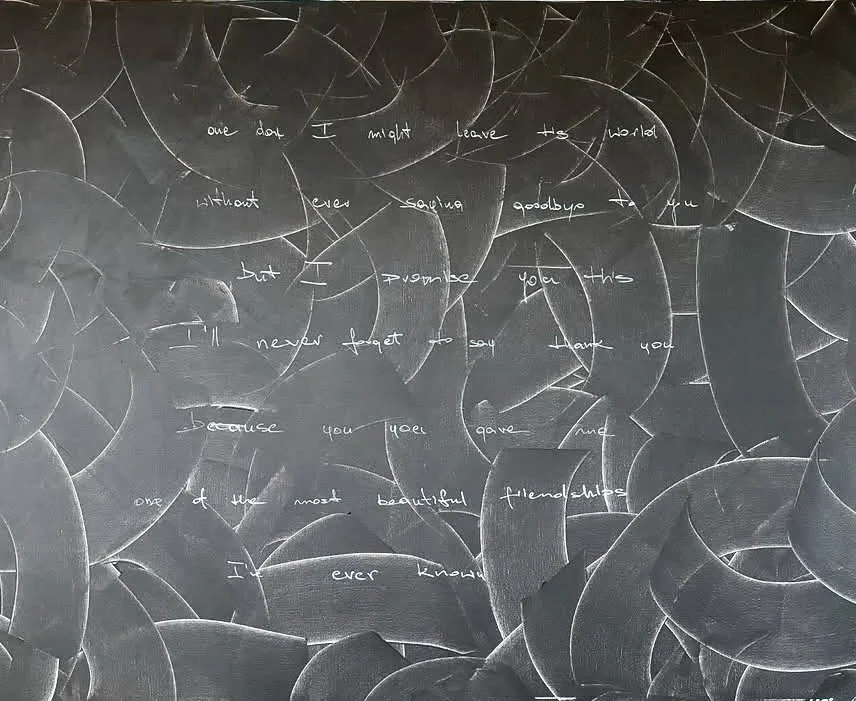 one day I might leave this world
without ever saying goodbye to you
but I promise you this
I'll never forget to say thank you
because you you gave me
one of the most beautiful friendships
I've ever known